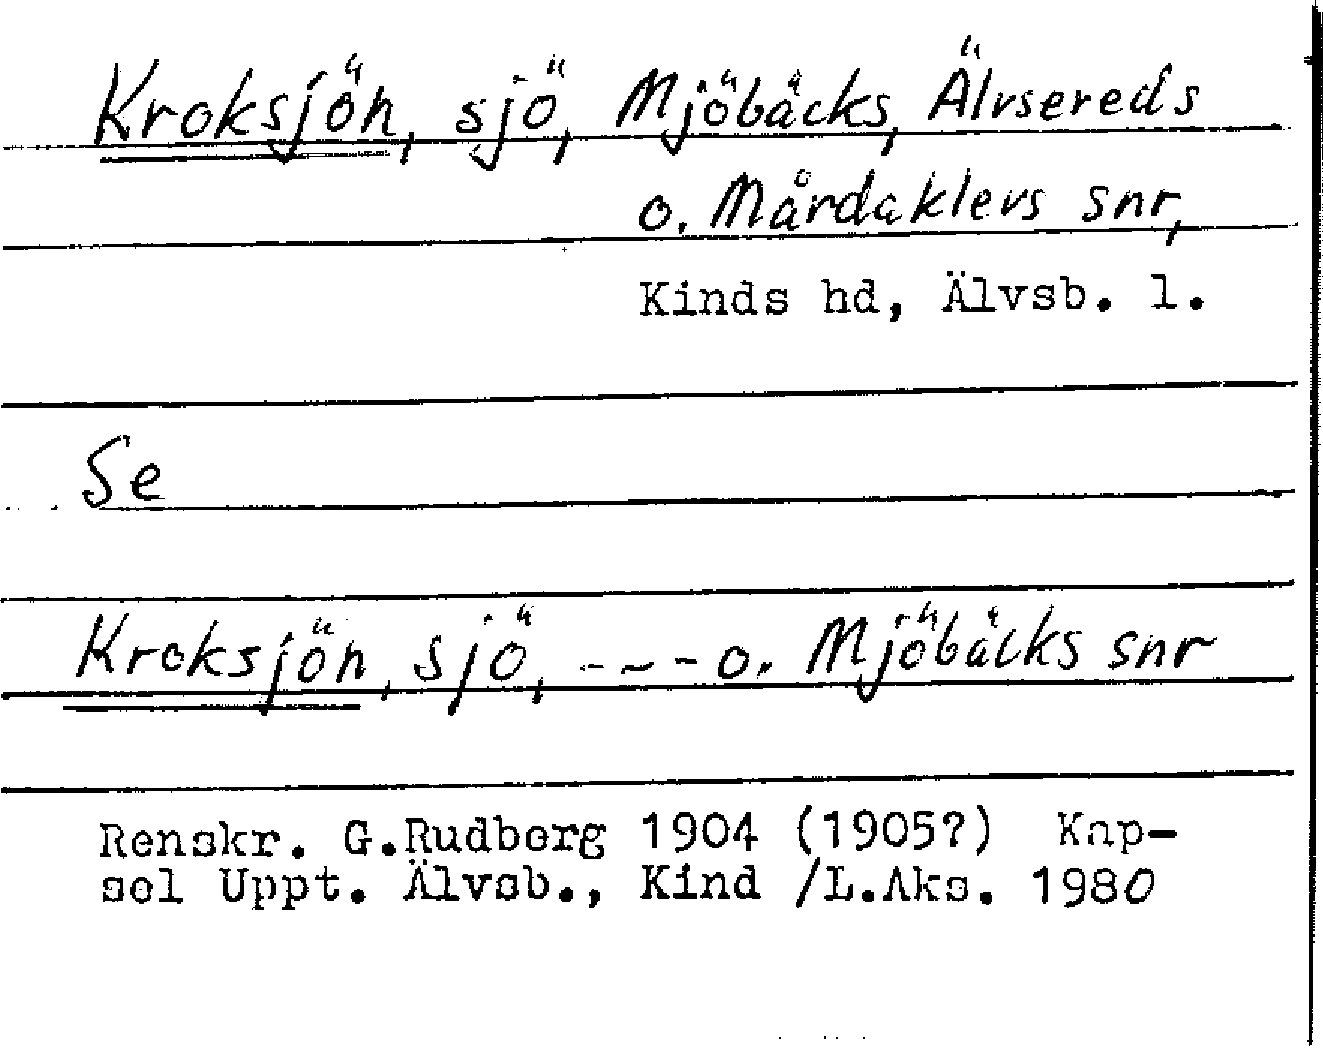 Kroksjön, sjö, Mjöbäcks, Älvsereds
o. Mårdaklevs snr,
Kinds hd, Älvsb. l.
Se
Kroksjön, sjö, --- o. Mjöbäcks snr
Renskr. G.Rudberg 1904 (1905?) Kap-
sel Uppt. Älvsb., Kind /L.Aks. 1980